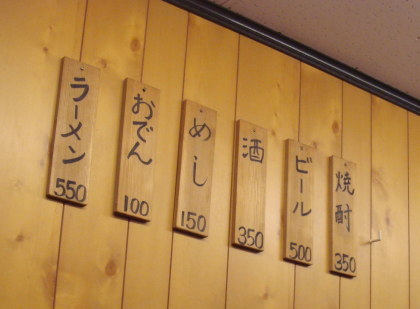 ラーメン
550
おでん
100
めし
150
酒
350
ビール
500
焼酎
350